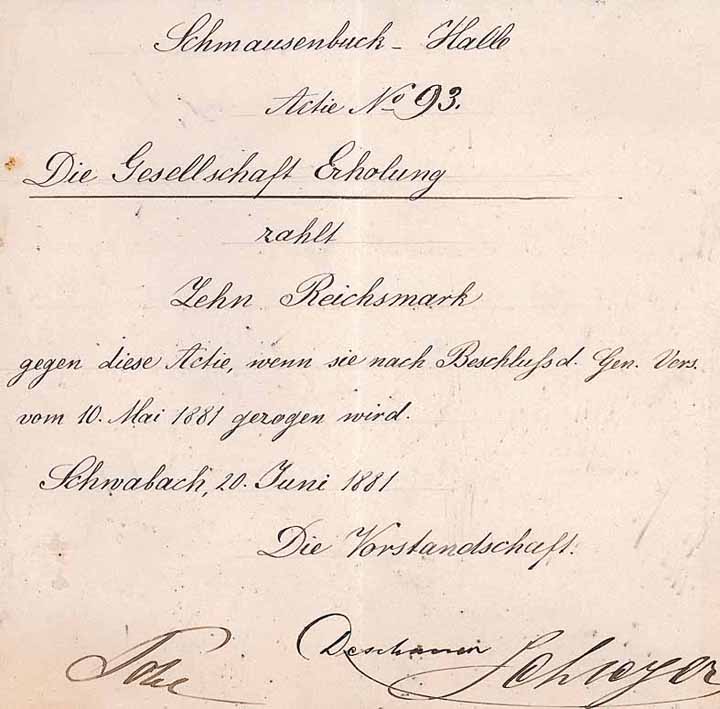 Schmausenbuck - Halle
Actie No 93.
Die Gesellschaft Erholung
zahlt
Zehn Reichsmark
gegen diese Actie, wenn sie nach Beschluſs d. Gen. Vers.
vom 10. Mai 1881 gezogen wird.
Schwabach, 20. Juni 1881
Die Vorstandschaft.